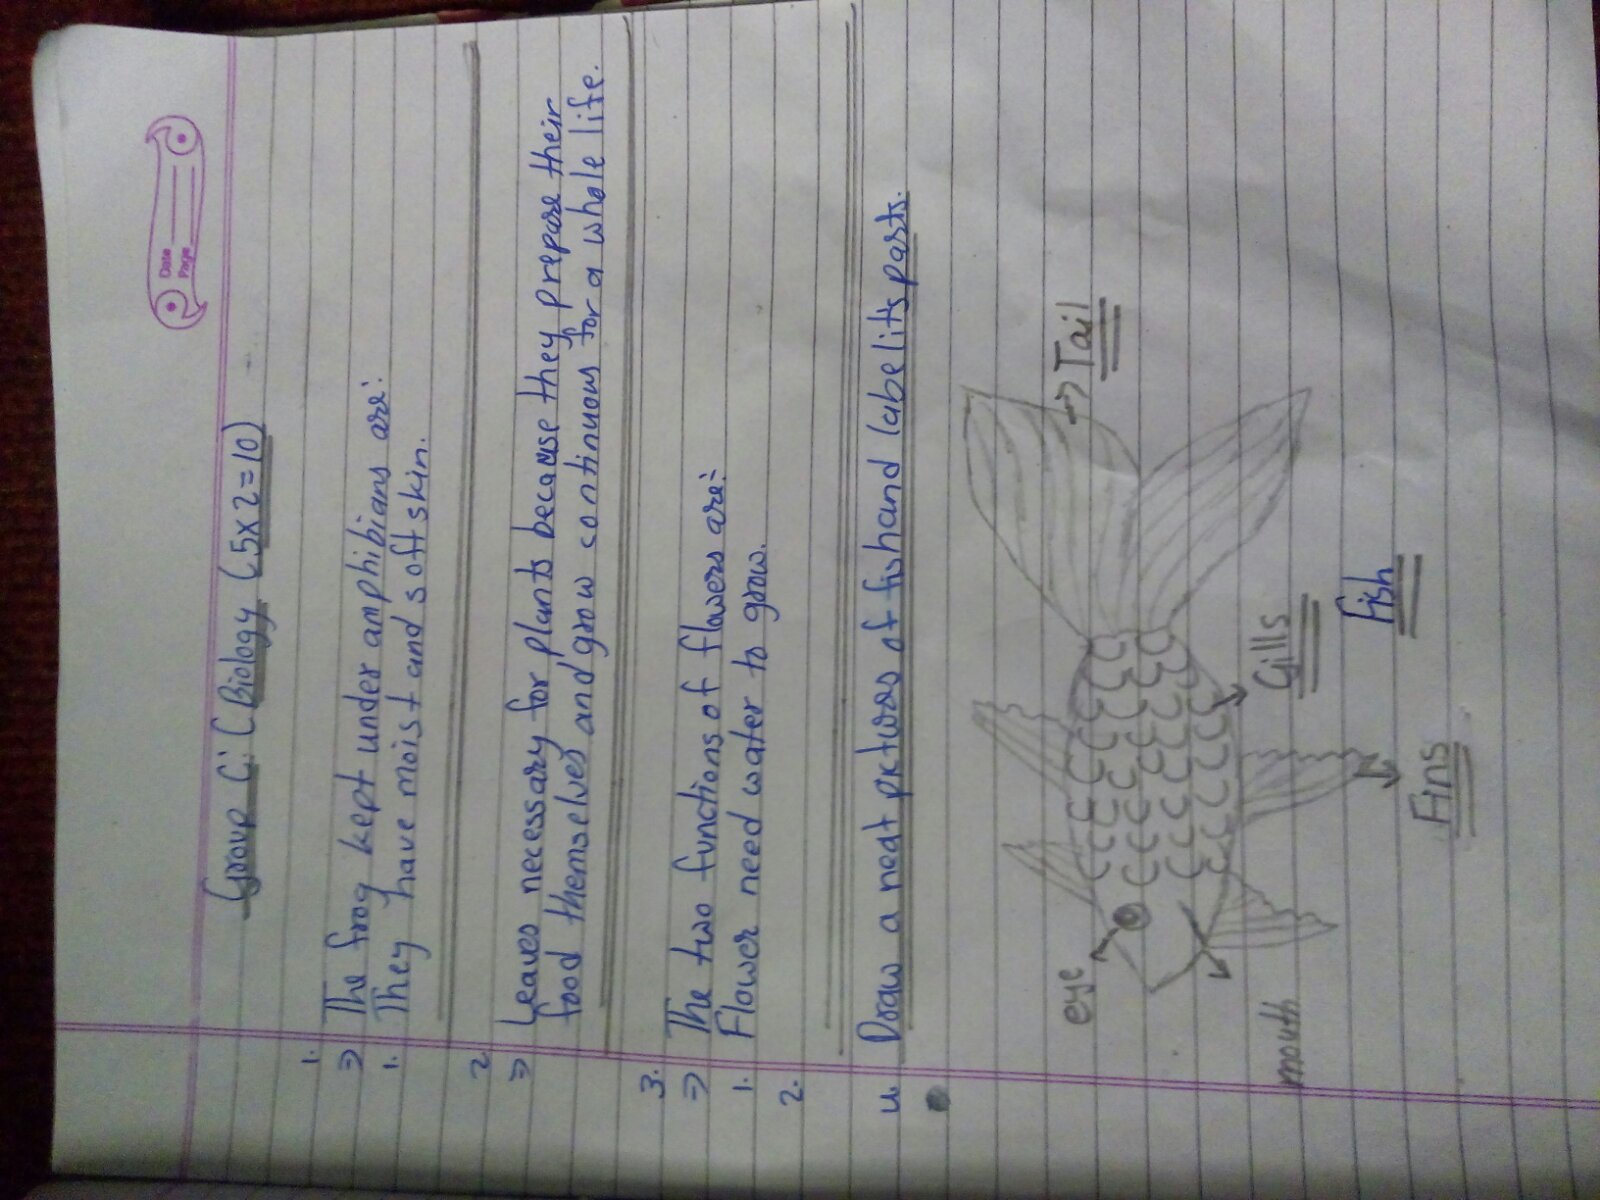 Date
Page
Group C: (Biology (5x2=10)
1.
⇒ The frog kept under amphibians are:
1. They have moist and soft skin.
2.
⇒ Leaves necessary for plants because they prepare their
food themselves and grow continuous for a whole life.
3.
⇒ The two functions of flowers are:
1. Flower need water to grow.
2.
4. Draw a neat pictures of fish and label its parts.
eye
Tail
mouth
Gills
Fins
Fish